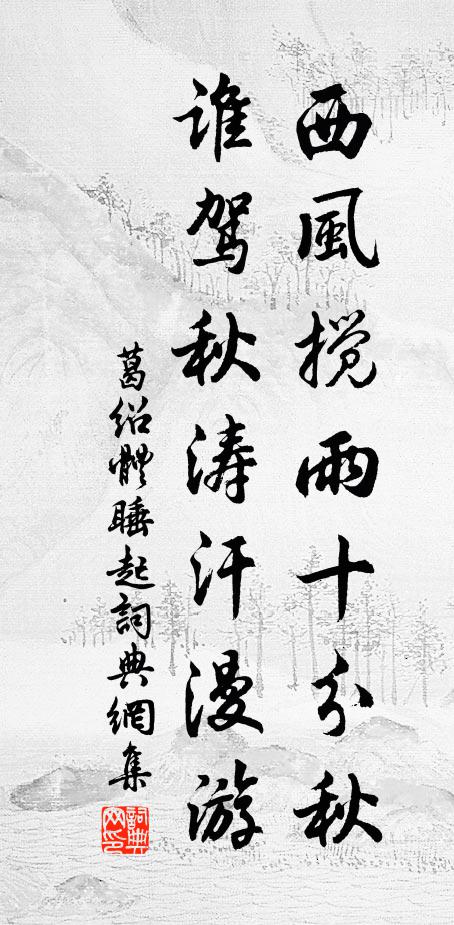 西風攪雨十分秋
谁驾秋涛汗漫游
葛绍體睡起詞典網集
詞典網印